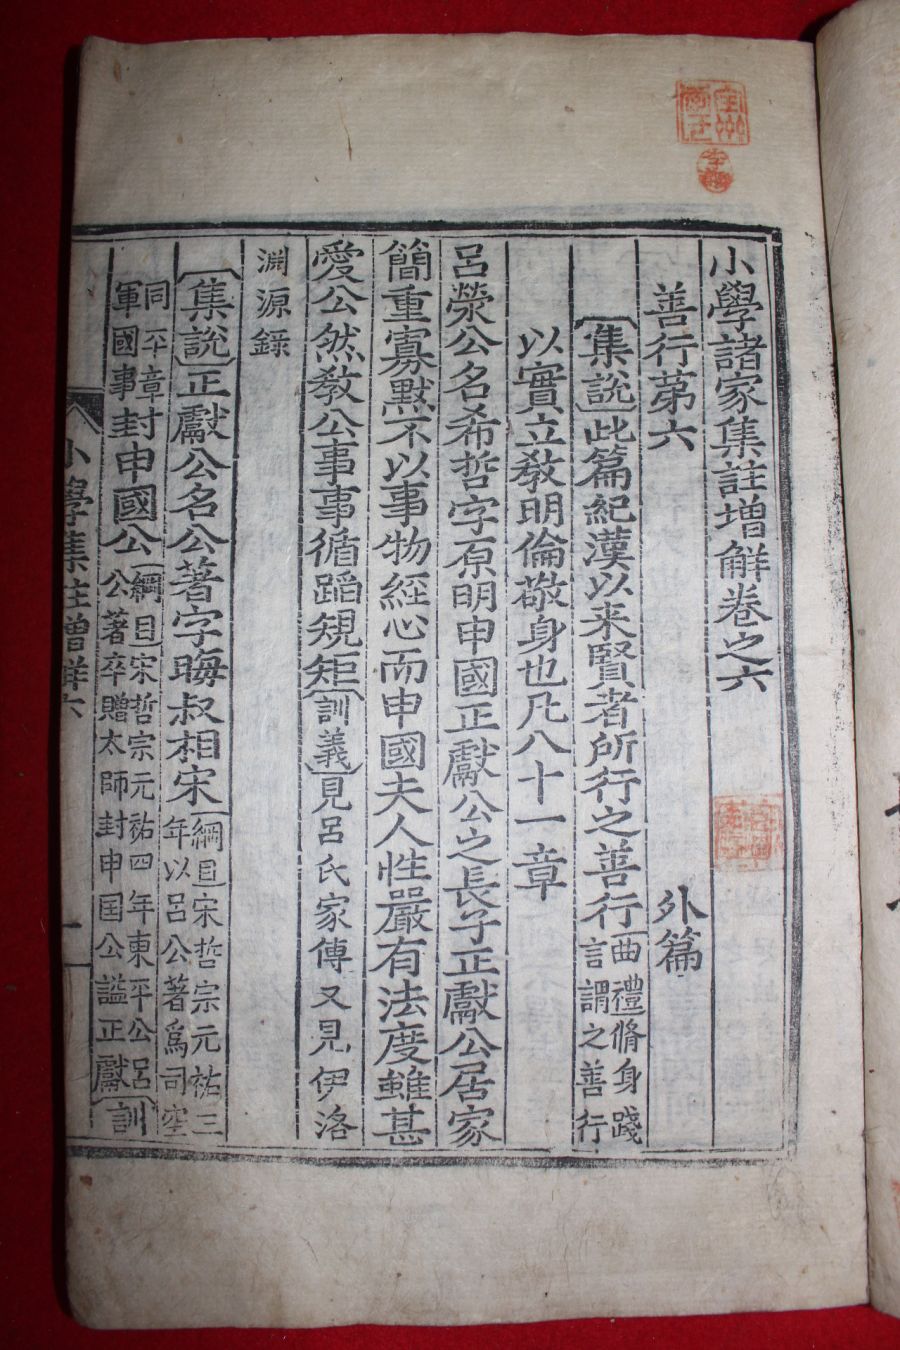 小學諸家集註增解卷之六
善行第六 外篇
集說此篇紀漢以来賢者所行之善行曲禮脩身踐言謂之善行
以實立敎明倫敬身也凡八十一章
呂滎公名希哲字原明申國正獻公之長子正獻公居家
簡重寡默不以事物經心而申國夫人性嚴有法度雖甚
愛公然敎公事事循蹈規矩訓義見呂氏家傳又見伊洛
淵源錄
集說正獻公名公著字晦叔相宋綱目宋哲宗元祐三年以呂公著爲司空
同平章軍國事封申國公綱目宋哲宗元祐四年東平公呂公著卒贈太師封申国公謚正獻訓
小學集註增解六 一